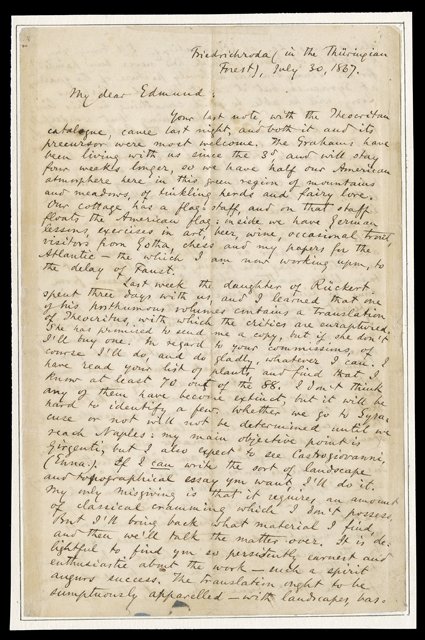 Friedrichroda (in the Thüringian
Forest), July 30, 1867.
My dear Edmund:
Your last note, with the Theocritan
catalogue, came last night, and both it and its
precursor were most welcome. The Grahams have
been living with us since the 3d and will stay
four weeks longer, so we have half our American
atmosphere here in this green region of mountains
and meadows, of tinkling herds and fairy lore.
Our cottage has a flag-staff, and on that staff
floats the American flag: inside we have German
lessons, exercises in art, beer, wine, occasional trout,
visitors from Gotha, chess and my papers for the
Atlantic — the which I am now working up, to
the delay of Faust.
Last week the daughter of Rückert
spent three days with us, and I learned that one
of his posthumous volumes contains a translation
of Theocritus, with which the critics are enraptured.
She has promised to send me a copy, but if she don't
I'll buy one. In regard to your commissions, of
course I'll do, and do gladly, whatever I can. I
have read your list of plants, and find that I
know at least 70 out of the 88. I don't think
any of them have become extinct, but it will be
hard to identify a few. Whether we go to Syra-
cuse or not will not be determined until we
reach Naples: my main objective point is
Girgenti, but I also expect to see Castrogiovanni,
(Enna.) If I can write the sort of landscape
and topographical essay you want, I'll do it.
My only misgiving is that it requires an amount
of classical cramming which I don't possess.
But I'll bring back what material I find,
and then we'll talk the matter over. It is de-
lightful to find you so persistently earnest and
enthusiastic about the work — such a spirit
augurs success. The translation ought to be
sumptuously apparelled — with landscapes, bas-